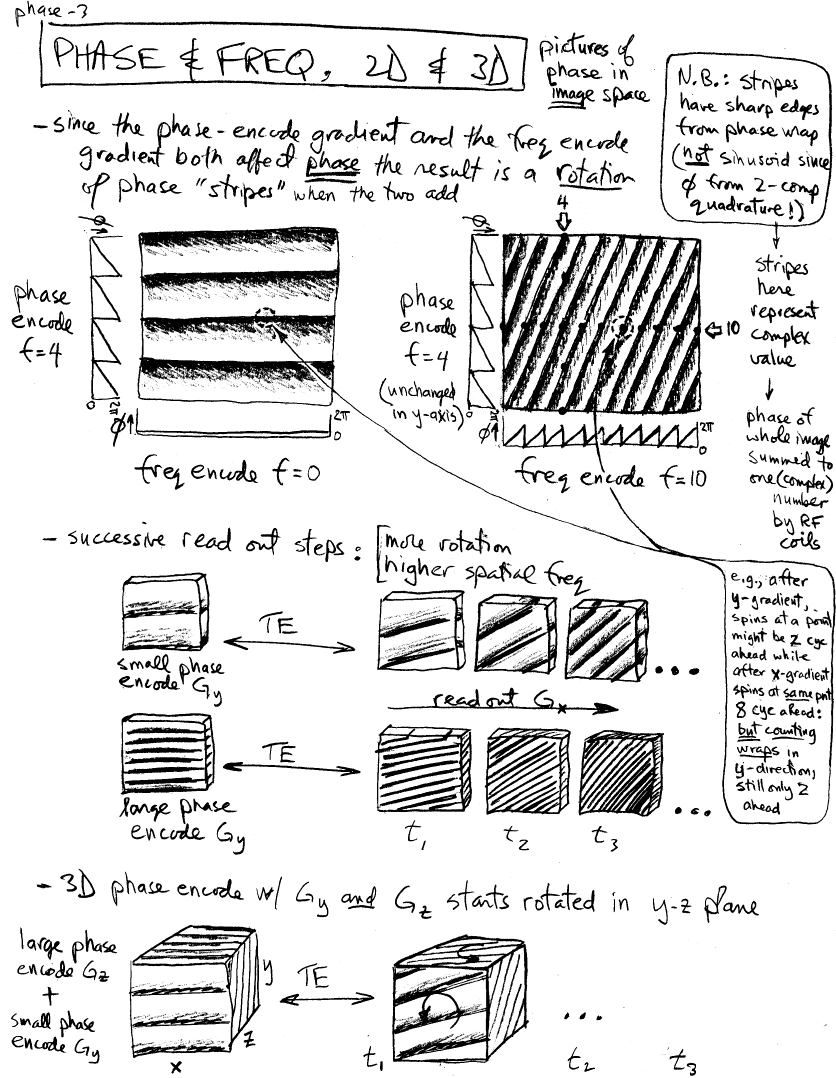 phase-3
PHASE & FREQ, 2D & 3D
pictures of
phase in
image space
N.B.: stripes
have sharp edges
from phase wrap
(not sinusoid since
φ from 2-comp
quadrature!)
- since the phase-encode gradient and the freq encode
gradient both affect phase the result is a rotation
of phase "stripes" when the two add
φ
phase
encode
f=4
0
2π
φ
2π
0
freq encode f=0
4
φ
phase
encode
f=4
(unchanged
in y-axis)
10
0
2π
φ
2π
0
freq encode f=10
stripes
here
represent
complex
value
phase of
whole image
summed to
one (complex)
number
by RF
coils
- successive read out steps:
more rotation
higher spatial freq
small phase
encode Gy
TE
...
read out Gx
large phase
encode Gy
TE
...
t1 t2 t3
e.g., after
y-gradient,
spins at a point
might be 2 cyc
ahead while
after x-gradient
spins at same pnt
8 cyc ahead:
but counting
wraps in
y-direction,
still only 2
ahead
- 3D phase encode w/ Gy and Gz starts rotated in y-z plane
large phase
encode Gz
+
small phase
encode Gy
x
y
z
TE
...
t1 t2 t3